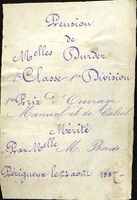 Pension
de
Melles Durder
1re Classe 1re Division
1er Prix d'Ouvrage
Manuel et de Calcul
Mérité
Par Melle M. Bards
Périgueux le 24 août 1887